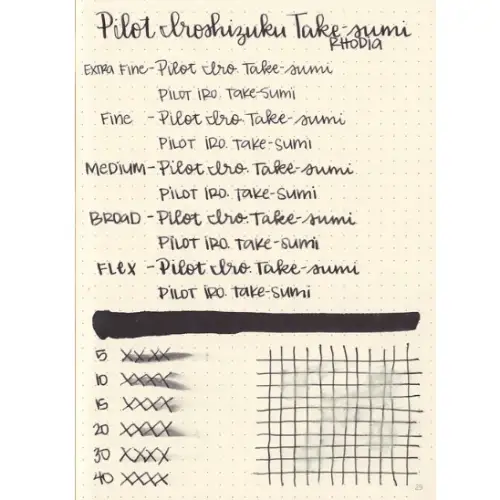 Pilot Iroshizuku Take-sumi
RHODIA
EXTRA FINE - Pilot Iro. Take-sumi
PILOT IRO. TAKE-SUMI
FINE - Pilot Iro. Take-sumi
PILOT IRO. TAKE-SUMI
MEDIUM - Pilot Iro. Take-sumi
PILOT IRO. TAKE-SUMI
BROAD - Pilot Iro. Take-sumi
PILOT IRO. TAKE-SUMI
FLEX - Pilot Iro. Take-sumi
PILOT IRO. TAKE-SUMI
5 XXXX
10 XXXX
15 XXXX
20 XXXX
30 XXXX
40 XXXX